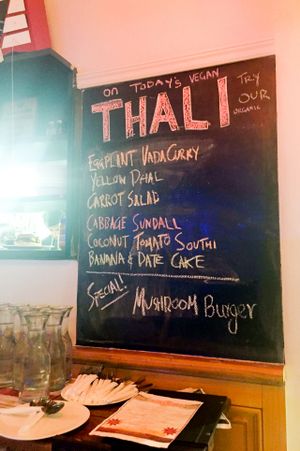 ON TODAY'S VEGAN
THALI
TRY
OUR
ORGANIC
EGGPLANT VADA CURRY
YELLOW DHAL
CARROT SALAD
CABBAGE SUNDALL
COCONUT TOMATO SOUTHI
BANANA & DATE CAKE
SPECIAL!
MUSHROOM Burger